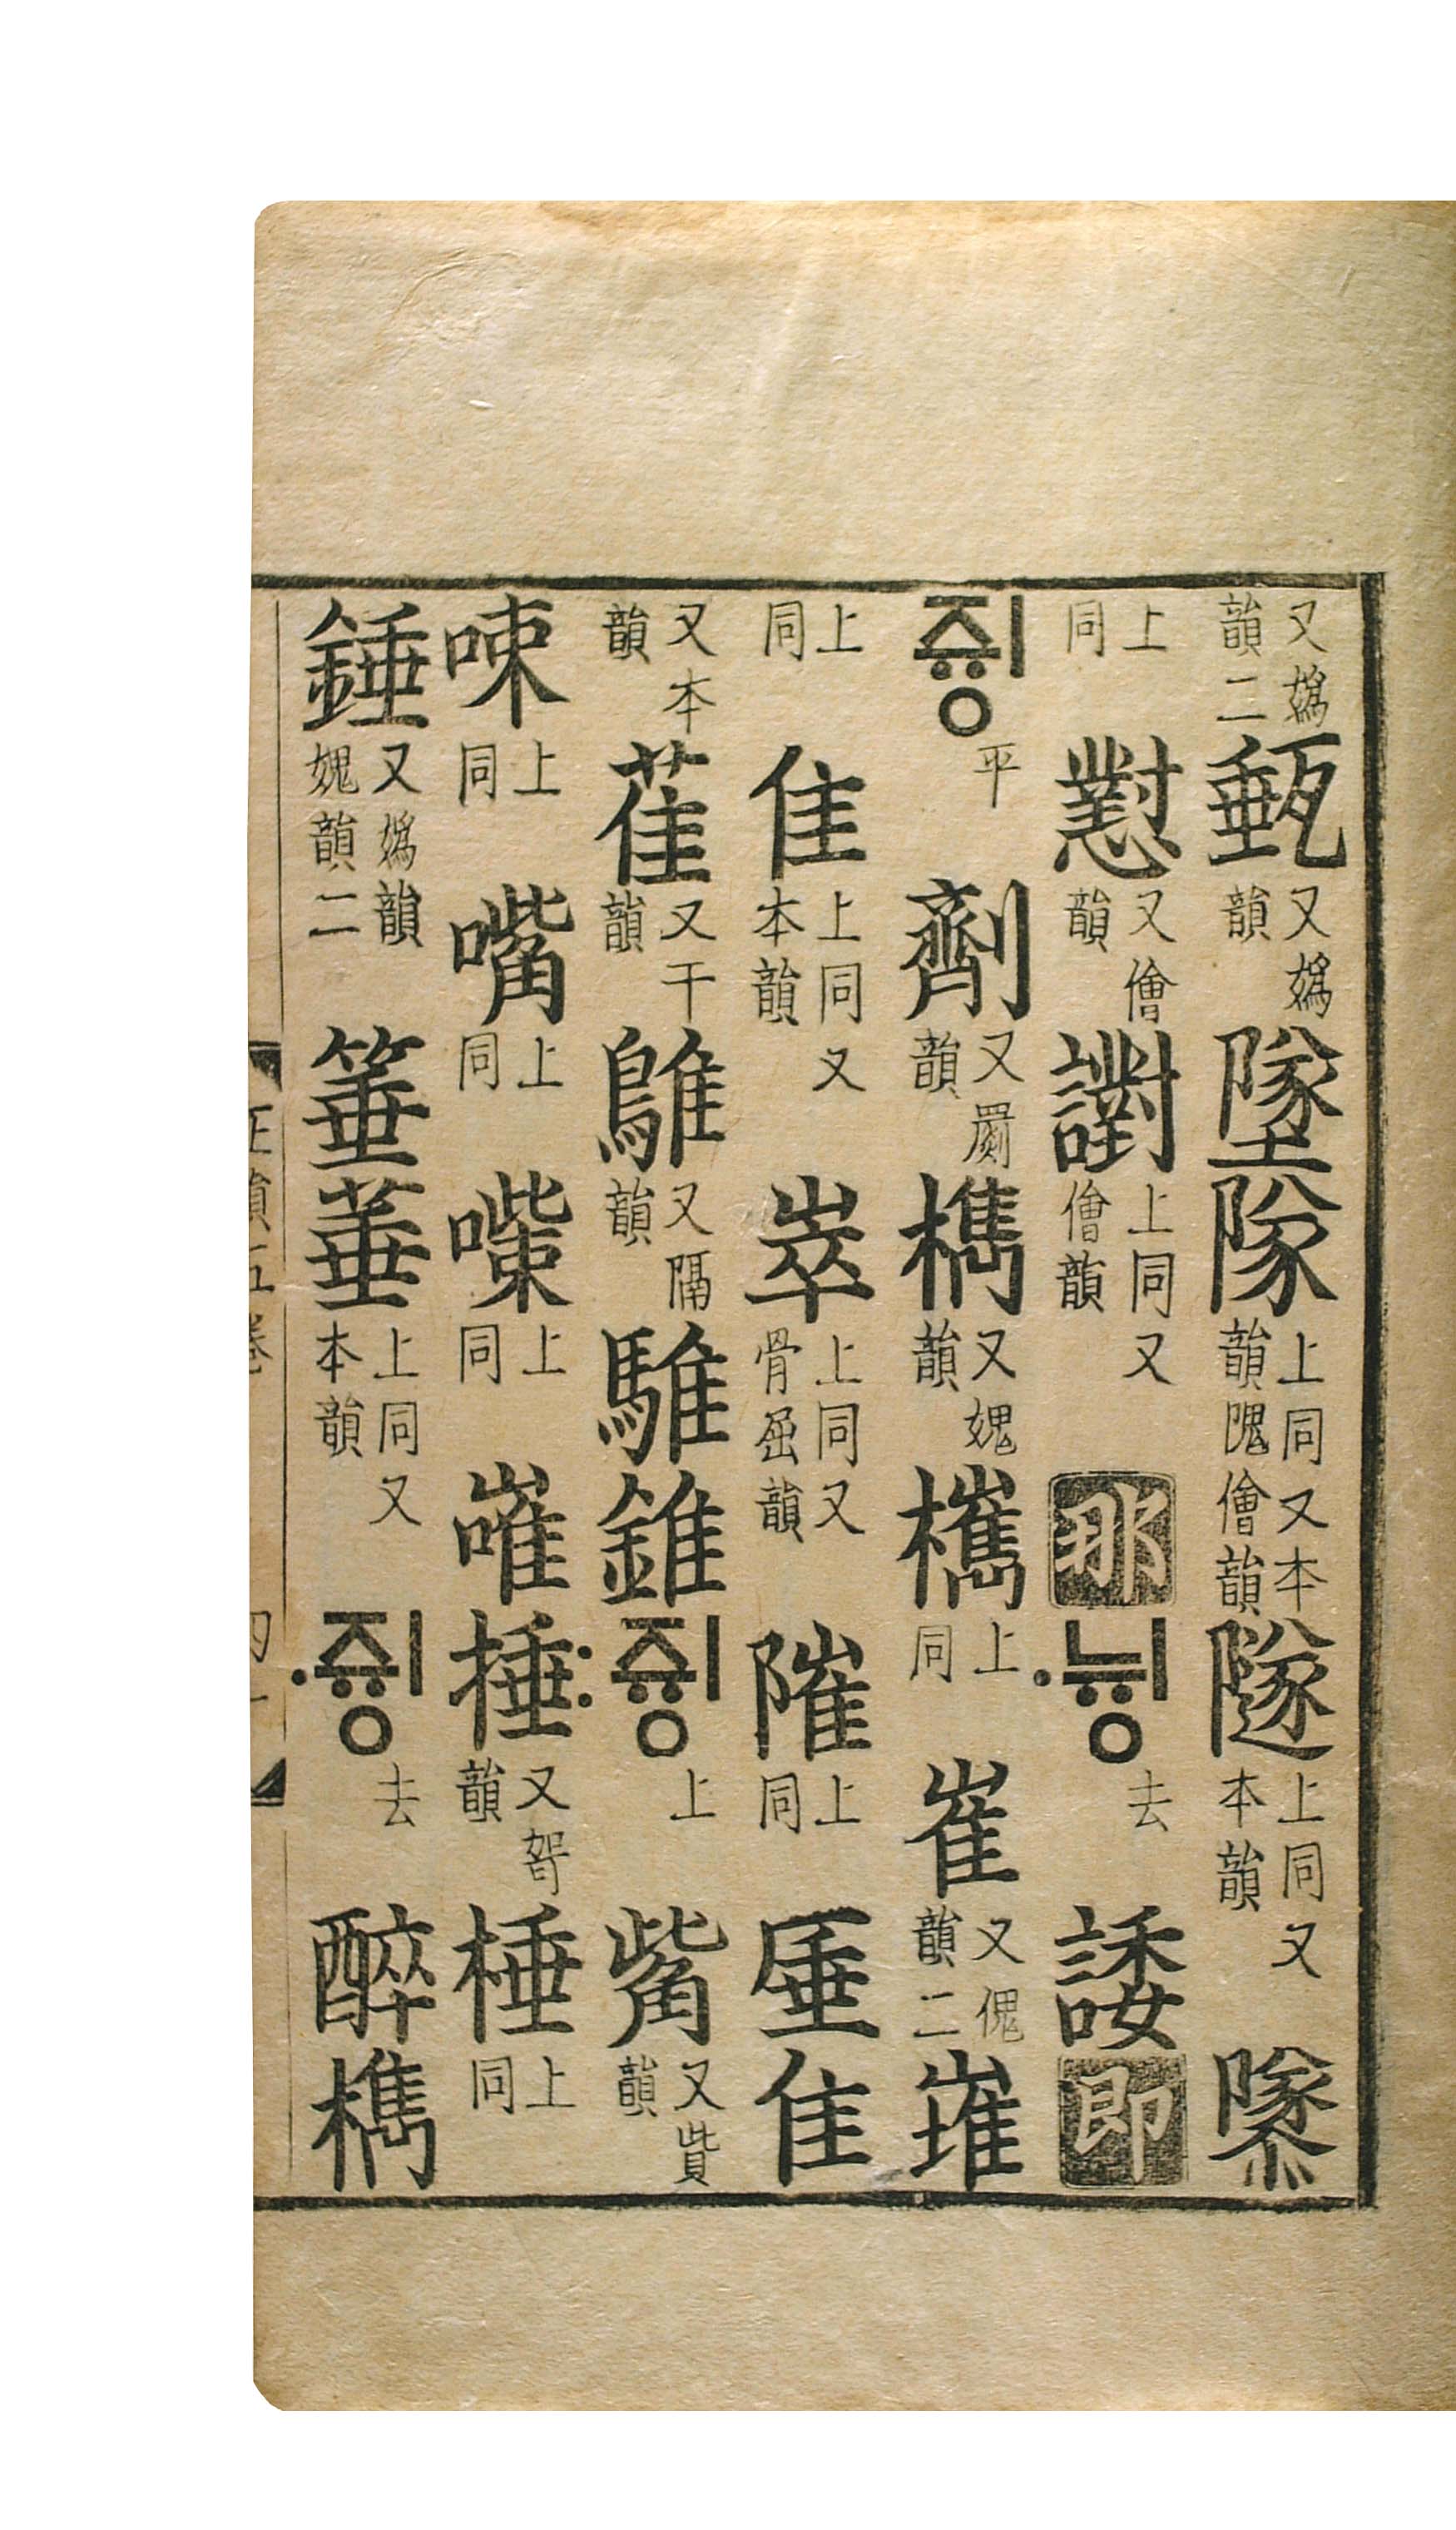 又嬀韻二甀又嬀韻墜隊上同又本韻隗儈韻隧上同又本韻
上同懟又儈韻譵上同又儈韻那·ᄂᆔᆼ去諉卽
ᄌᆔᆼ平劑又罽韻檇又媿韻欈上同崔又傀韻二嶊
上同隹上同又本韻崒上同又骨屈韻陮上同厜隹
又本韻萑又干韻鵻又韻騅錐:ᄌᆔᆼ上觜又貲韻
上同嘴上同上同嗺捶又哿韻棰上同
錘又嬀韻媿韻二箠菙上同又本韻·ᄌᆔᆼ去醉檇